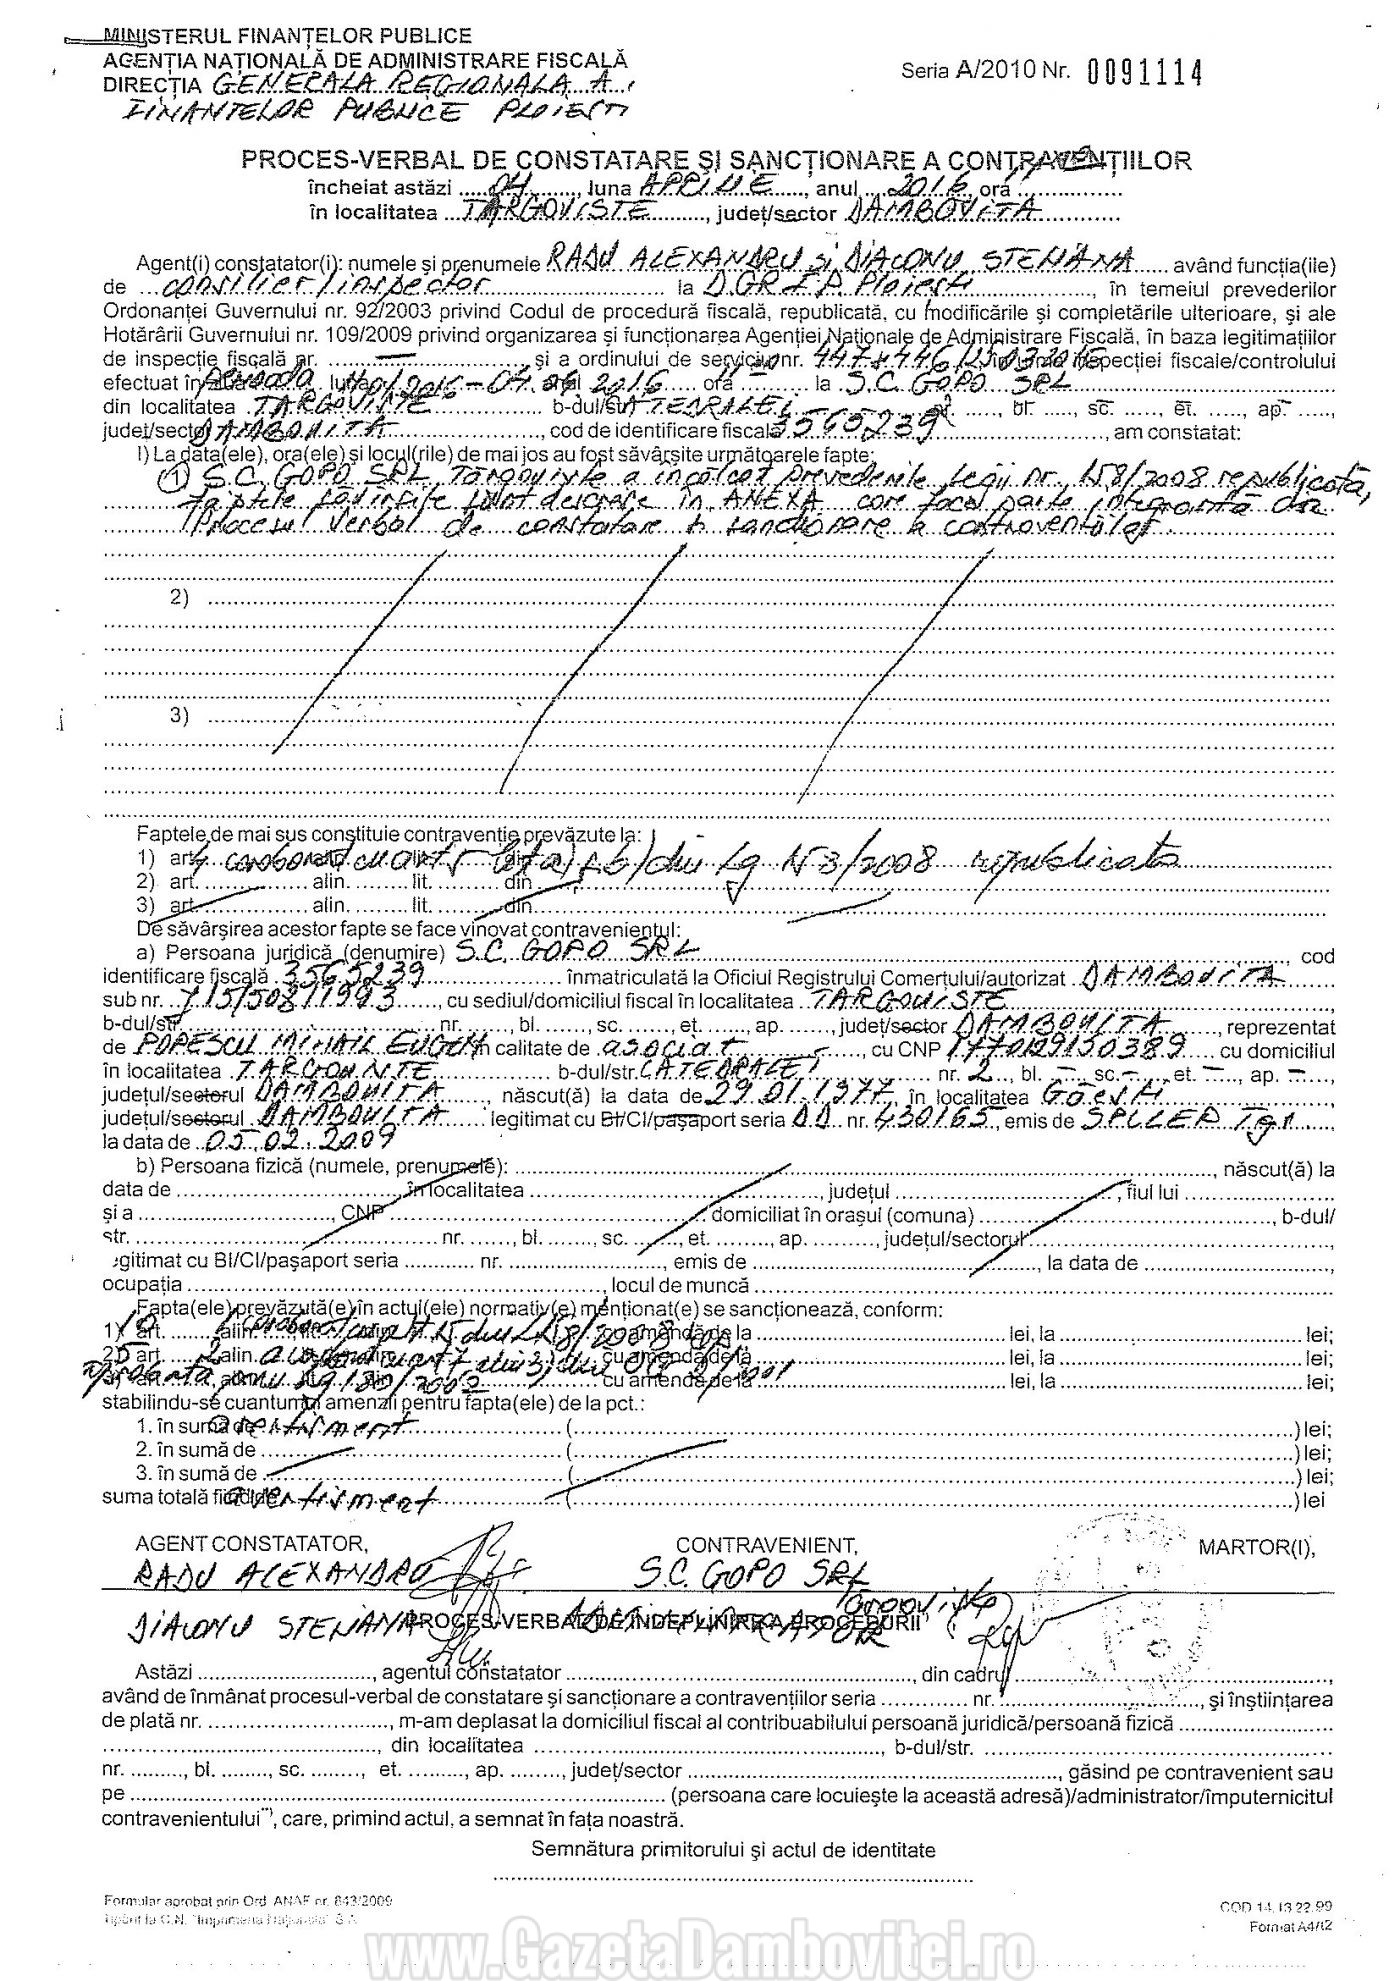 MINISTERUL FINANȚELOR PUBLICE
AGENȚIA NAȚIONALĂ DE ADMINISTRARE FISCALĂ
DIRECȚIA GENERALA REGIONALA A
FINANTELOR PUBLICE PLOIESTI
Seria A/2010 Nr. 0091114
PROCES-VERBAL DE CONSTATARE ȘI SANCȚIONARE A CONTRAVENȚIILOR
încheiat astăzi 04, luna APRILIE, anul 2016, ora
în localitatea TARGOVISTE, județ/sector DAMBOVITA
Agent(i) constatator(i): numele și prenumele RADU ALEXANDRU si DIACONU STENIANA având funcția(ile)
de consilier/inspector la D.G.R.F.P. Ploiesti, în temeiul prevederilor
Ordonanței Guvernului nr. 92/2003 privind Codul de procedură fiscală, republicată, cu modificările și completările ulterioare, și ale
Hotărârii Guvernului nr. 109/2009 privind organizarea și funcționarea Agenției Naționale de Administrare Fiscală, în baza legitimațiilor
de inspecție fiscală nr. — și a ordinului de serviciu nr. inspecției fiscale/controlului
efectuat în perioada 2016 ora la S.C. GOPO SRL
din localitatea TARGOVISTE b-dul/str. CATEDRALEI nr. ....., bl. ....., sc. ....., et. ....., ap. .....,
județ/sector DAMBOVITA, cod de identificare fiscală 3565239, am constatat:
I) La data(ele), ora(ele) și locul(rile) de mai jos au fost săvârșite următoarele fapte:
1 S.C. GOPO SRL Târgoviște a încălcat prevederile Legii nr. 158/2008 republicată,
faptele savirsite sunt descrise in ANEXA care face parte integrantă din
Procesul Verbal de constatare si sanctionare a contraventiilor.
2)
3)
Faptele de mai sus constituie contravenție prevăzute la:
1) art. 4 coroborat cu art 5 lit a) b) din Lg 158/2008 republicata
2) art. .......... alin. ......... lit. ......... din
3) art. .......... alin. ......... lit. ......... din
De săvârșirea acestor fapte se face vinovat contravenientul:
a) Persoana juridică (denumire) S.C. GOPO SRL, cod
identificare fiscală 3565239 înmatriculată la Oficiul Registrului Comerțului/autorizat DAMBOVITA
sub nr. J15/508/1993, cu sediul/domiciliul fiscal în localitatea TARGOVISTE
b-dul/str. nr. ......, bl. ......, sc. ......, et. ......, ap. ......, județ/sector DAMBOVITA, reprezentat
de POPESCU MIHAIL EUGEN în calitate de asociat, cu CNP 1770129150389 cu domiciliul
în localitatea TARGOVISTE b-dul/str. CATEDRALEI nr. 2, bl. —, sc. —, et. —, ap. —,
județul/sectorul DAMBOVITA, născut(ă) la data de 29.01.1977, în localitatea Găesti
județul/sectorul DAMBOVITA legitimat cu BI/CI/pașaport seria DD nr. 430165, emis de SPCLEP Tgv,
la data de 05.02.2009
b) Persoana fizică (numele, prenumele): , născut(ă) la
data de în localitatea , județul , fiul lui
și a , CNP domiciliat în orașui (comuna) , b-dul/
str. nr. ......., bl. ......., sc. ......, et. ........, ap. ........, județul/sectorul ,
egitimat cu BI/CI/pașaport seria nr. , emis de , la data de ,
ocupația , locul de muncă
Fapta(ele) prevăzută(e) în actul(ele) normativ(e) menționat(e) se sancționează, conform:
1) art. alin. cu amendă de la lei, la lei;
2) art. alin. cu amendă de la lei, la lei;
3) art. cu amendă de la lei, la lei;
stabilindu-se cuantumul amenzii pentru fapta(ele) de la pct.:
1. în sumă de avertisment ( ) lei;
2. în sumă de ( ) lei;
3. în sumă de ( ) lei;
suma totală fiind de avertisment ( ) lei
AGENT CONSTATATOR, CONTRAVENIENT, MARTOR(I),
RADU ALEXANDRU S.C. GOPO SRL
Târgoviște
DIACONU STENIANA ADMINISTRATOR
PROCES-VERBAL DE ÎNDEPLINIRE A PROCEDURII
Astăzi , agentul constatator , din cadrul ,
având de înmânat procesul-verbal de constatare și sancționare a contravențiilor seria nr. , și înștiințarea
de plată nr. , m-am deplasat la domiciliul fiscal al contribuabilului persoană juridică/persoană fizică
, din localitatea , b-dul/str.
nr. ........., bl. ........, sc. ........, et. ........., ap. ........, județ/sector , găsind pe contravenient sau
pe (persoana care locuiește la această adresă)/administrator/împuternicitul
contravenientului**), care, primind actul, a semnat în fața noastră.
Semnătura primitorului și actul de identitate
Formular aprobat prin Ord. ANAF nr. 843/2009
Tipărit la C.N. "Imprimeria Națională" S.A.
COD 14.13.22.99
Format A4/t2
www.GazetaDambovitei.ro